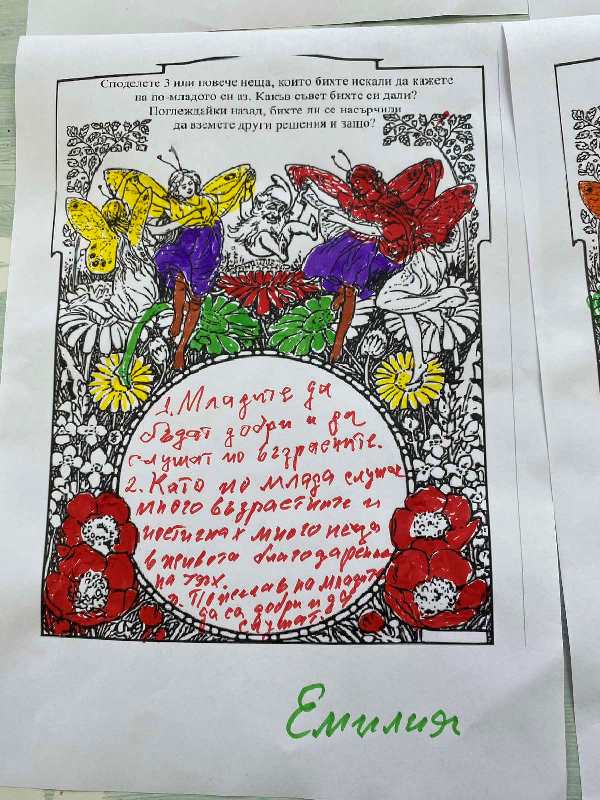 Споделете 3 или повече неща, които бихте искали да кажете
на по-младото си аз. Какъв съвет бихте си дали?
Поглеждайки назад, бихте ли се насърчили
да вземете други решения и защо?
1. Младите да
бъдат добри и да
слушат по възрастните.
2. Като по млада слушах
много възрастните и
постигнах много неща
в живота благодарение
на тях.
Пожелав на младите
да са добри и да
слушат.
Емилия